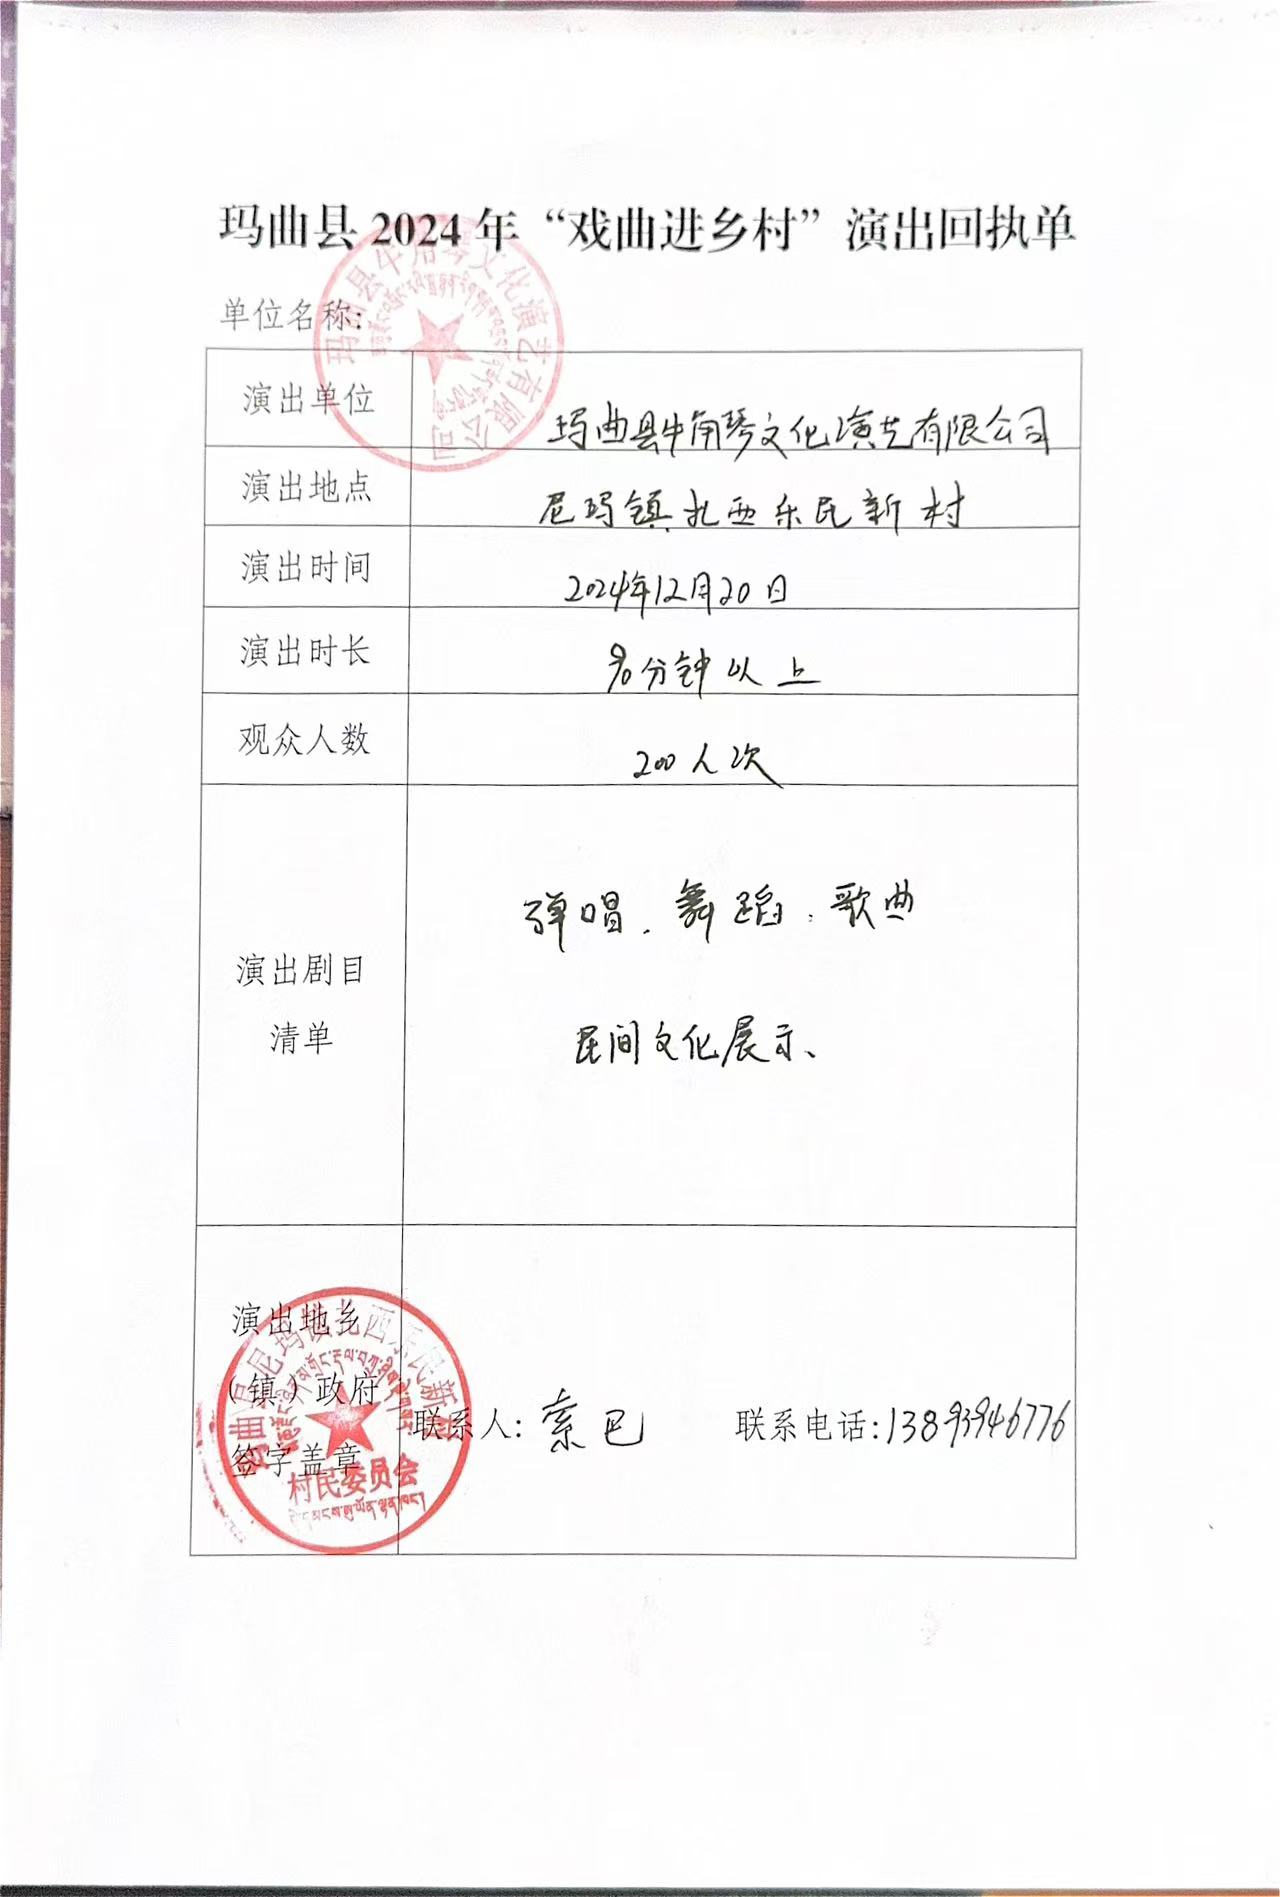 玛曲县2024年“戏曲进乡村”演出回执单
单位名称:
玛曲县牛角琴文化演艺有限公司
演出单位
玛曲县牛角琴文化演艺有限公司
演出地点
尼玛镇扎西乐民新村
演出时间
2024年12月20日
演出时长
90分钟以上
观众人数
200人次
演出剧目
清单
弹唡、舞蹈、歌曲
民间文化展示、
演出地乡
(镇)政府
签字盖章
玛曲县尼玛镇扎西乐民新村
村民委员会
联系人:索巴 联系电话:13893946776